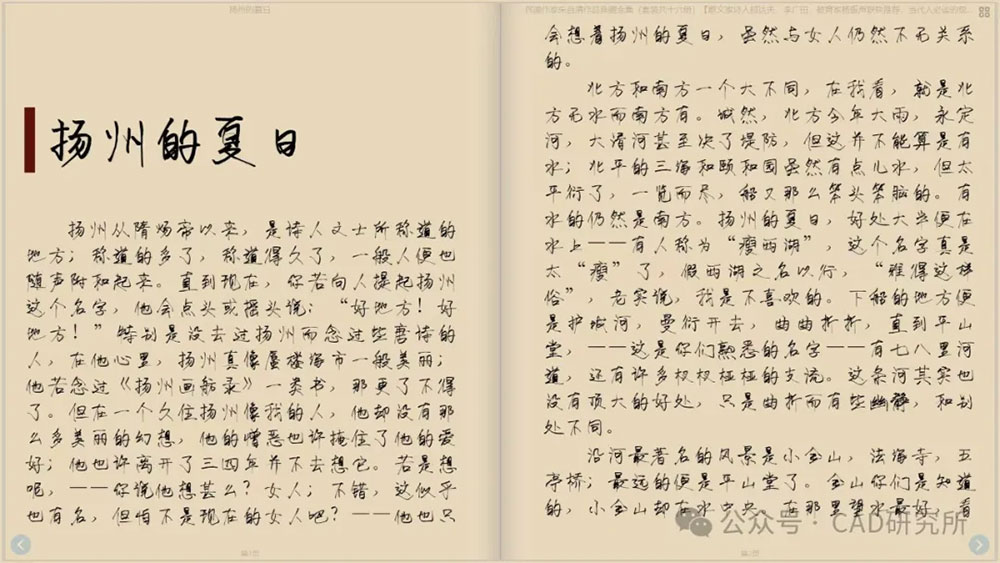 扬州的夏日
扬州的夏日
扬州从隋炀帝以来，是诗人文士所称道的
地方；称道的多了，称道得久了，一般人便也
随声附和起来。直到现在，你若向人提起扬州
这个名字，他会点头或摇头说：“好地方！好
地方！”特别是没去过扬州而念过些唐诗的
人，在他心里，扬州真像蜃楼海市一般美丽；
他若念过《扬州画舫录》一类书，那更了不得
了。但在一个久住扬州像我的人，他却没有那
么多美丽的幻想，他的憎恶也许掩住了他的爱
好；他也许离开了三四年并不去想它。若是想
呢，——你说他想甚么？女人；不错，这似乎
也有名，但怕不是现在的女人吧？——他也只
会想着扬州的夏日，虽然与女人仍然不无关系
的。
北方和南方一个大不同，在我看，就是北
方无水而南方有。诚然，北方今年大雨，永定
河，大清河甚至决了堤防，但这并不能算是有
水；北平的三海和颐和园虽然有点儿水，但太
平衍了，一览而尽，船又那么笨头笨脑的。有
水的仍然是南方。扬州的夏日，好处大半便在
水上——有人称为“瘦西湖”，这个名字真是
太“瘦”了，假西湖之名以行，“雅得这样
俗”，老实说，我是不喜欢的。下船的地方便
是护城河，曼衍开去，曲曲折折，直到平山
堂，——这是你们熟悉的名字——有七八里河
道，还有许多杈杈桠桠的支流。这条河其实也
没有顶大的好处，只是曲折而有些幽静，和别
处不同。
沿河最著名的风景是小金山，法海寺，五
亭桥；最远的便是平山堂了。金山你们是知道
的，小金山却在水中央。在那里望水最好，看
公众号 · CAD研究所